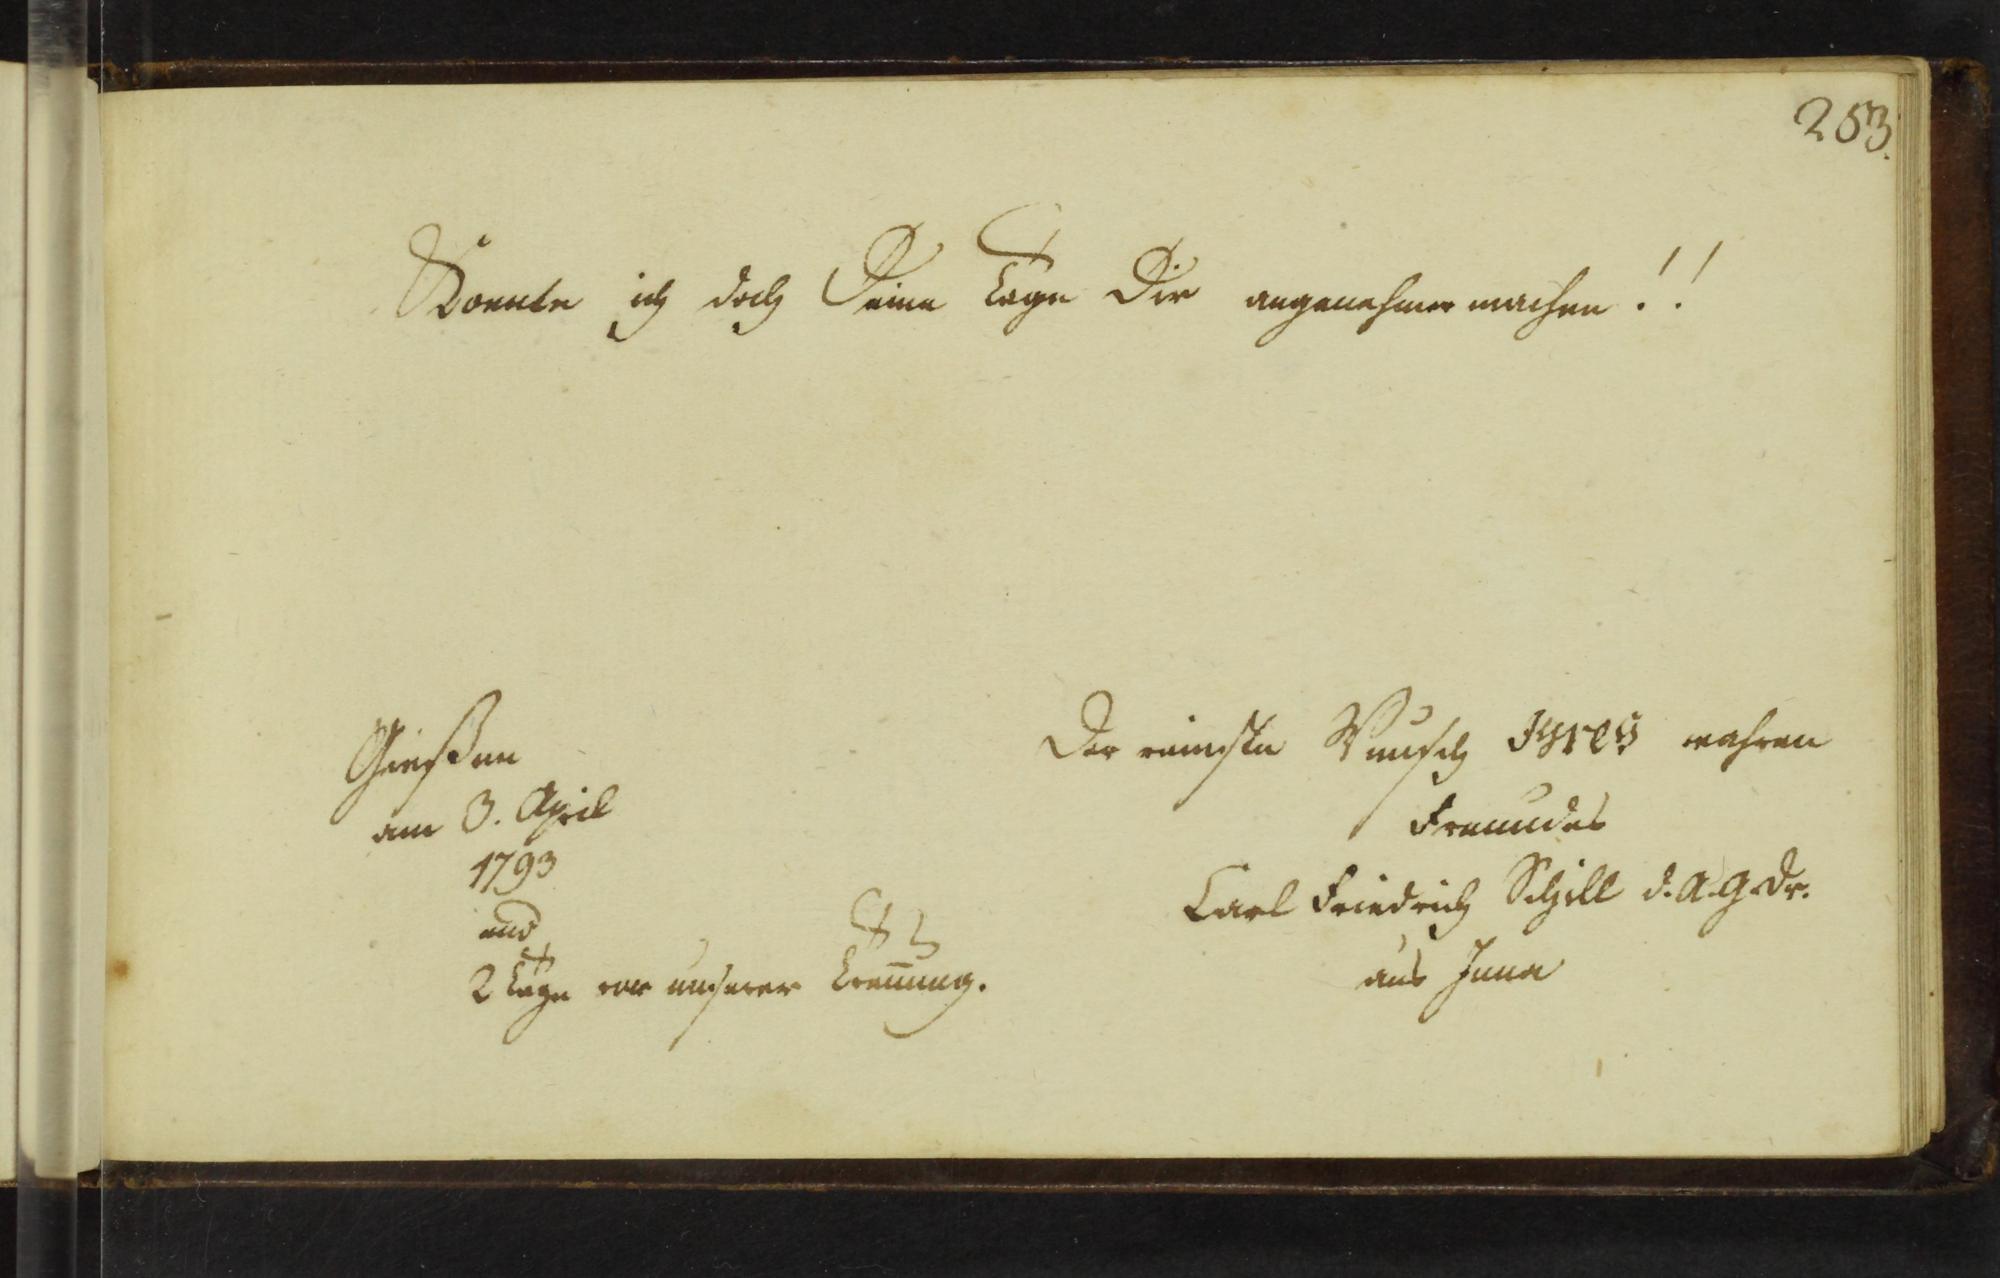 253.
Koennte ich doch Deine Tage Dir angenehmer machen!!
Gießen
am 3. April
1793
und
2 Tage vor unserer Trennung.
Der reinste Wunsch Ihres wahren
Freundes
Carl Friedrich Schill d. A. G. Dr.
aus Jena